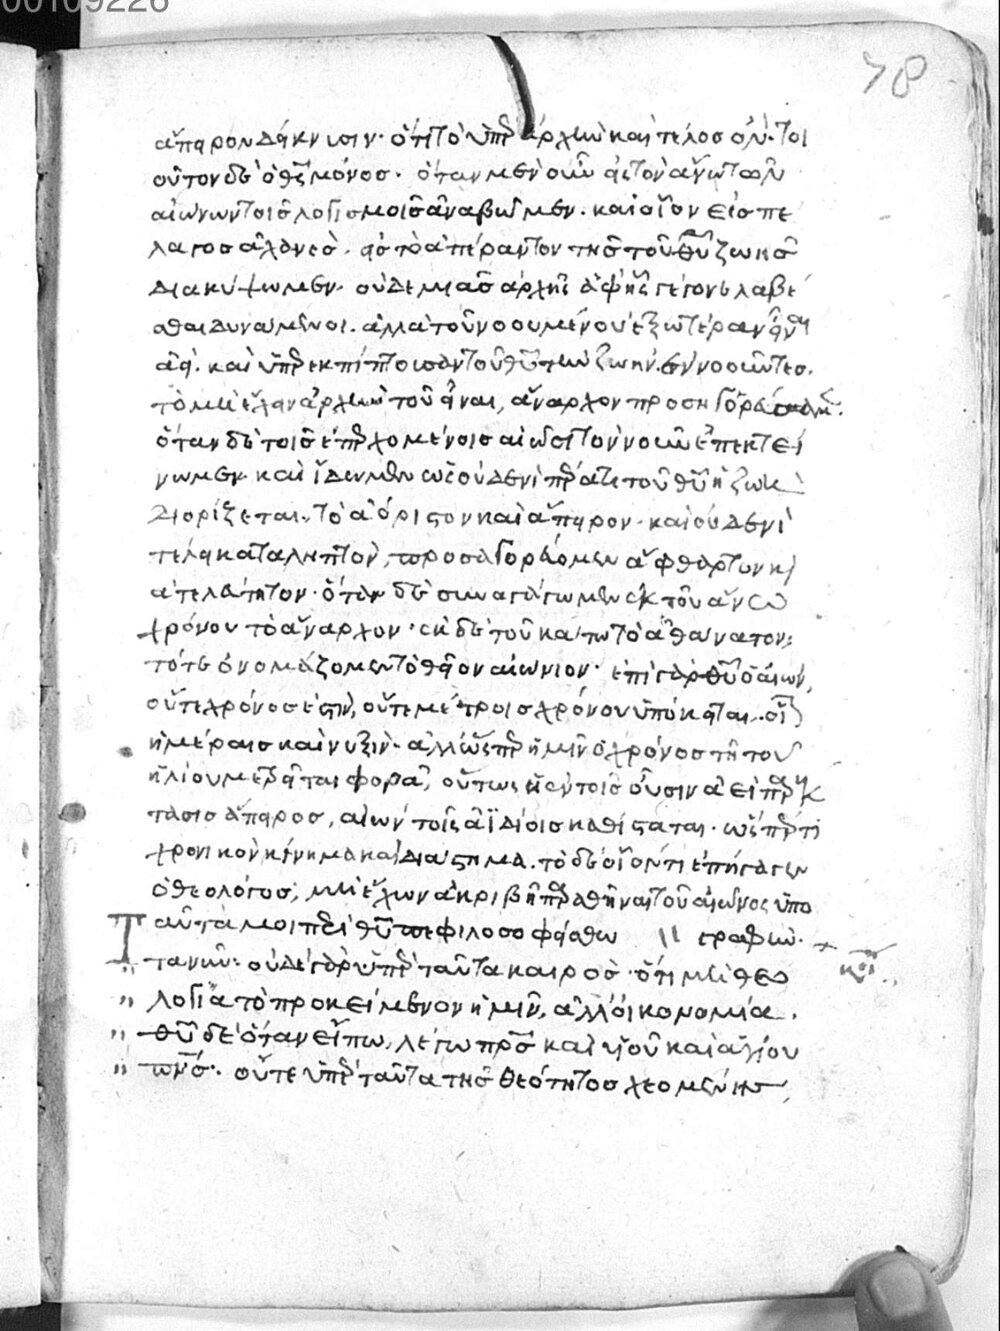 00109226
78
ἄπειρον δείκνυσιν· ὅτι τὸ ὑπὲρ ἀρχὴν καὶ τέλος ὂν, τοι
οῦτον δὲ ὁ θς μόνος· ὅταν μὲν οὖν εἰς τὸν ἄνω τῶν
αἰώνων τοῖς λογισμοῖς ἀναβῶμεν· καὶ οἷον εἰς πέ
λαγος ἀχανὲς, εἰς τὸ ἀπέραντον τῆς τοῦ θυ ζωῆς
διακύψωμεν· οὐδεμιᾶς ἀρχῆς ἀφ' ἧς γέγονε λαβέ
σθαι δυνάμενοι. ἀλλὰ τοῦ νοουμένου ἐξωτέραν εἶναι
ἀεὶ. καὶ ὑπερεκπίπτουσαν τοῦ θυ τὴν ζωὴν ἐννοοῦντες.
τὸ μὴ ἔχειν ἀρχὴν τοῦ εἶναι, ἄναρχον
ὅταν δὲ τοῖς ἐπερχομένοις αἰῶσι τὸν νοῦν ἐπεκτεί
νωμεν· καὶ ἴδωμεν ὡς οὐδενὶ πέρατι τοῦ θυ ἡ ζωὴ
διορίζεται. τὸ ἀόριστον καὶ ἄπειρον· καὶ οὐδενὶ
τέλει καταληπτὸν, προσαγορεύομεν ἄφθαρτον κ
ἀτελεύτητον· ὅταν δὲ συναγάγωμεν ἐκ τοῦ ἄνω
χρόνου τὸ ἄναρχον· ἐκ δὲ τοῦ κάτω τὸ ἀθάνατον·
τότε ὀνομάζομεν τὸ θεῖον αἰώνιον· ἐπὶ γὰρ θυ ὁ αἰών,
οὔτε χρόνος ἐστὶν, οὔτε μέτροις χρόνου ὑπόκειται.
ἡμέραις καὶ νυξὶν· ἀλλ' ὥσπερ ἡμῖν ὁ χρόνος τῇ τοῦ
ἡλίου μετρεῖται φορᾷ, οὕτως τοῖς οὖσιν ἀεὶ
τασις ἄπειρος, αἰὼν τοῖς ἀϊδίοις καθίσταται. ὥσπερ τι
χρονικὸν κίνημα καὶ διάστημα. τὸ δὲ οἷον τι ἐπήγαγεν
ὁ θεολόγος, μὴ ἔχων ἀκριβῆ τοῦ αἰῶνος ὑπο
ταῦτα μοι περὶ θυ πεφιλοσοφείσθω γραφὴν·
τανῦν· οὐδὲ γὰρ ὑπὲρ ταῦτα καιρὸς· ὅτι μὴ θεο
λογία τὸ προκείμενον ἡμῖν, ἀλλ' οἰκονομία.
θυ δὲ ὅταν εἴπω, λέγω πρς καὶ υἱοῦ καὶ ἁγίου
πνς. οὔτε ὑπὲρ ταῦτα τῆς θεότητος χεομένης